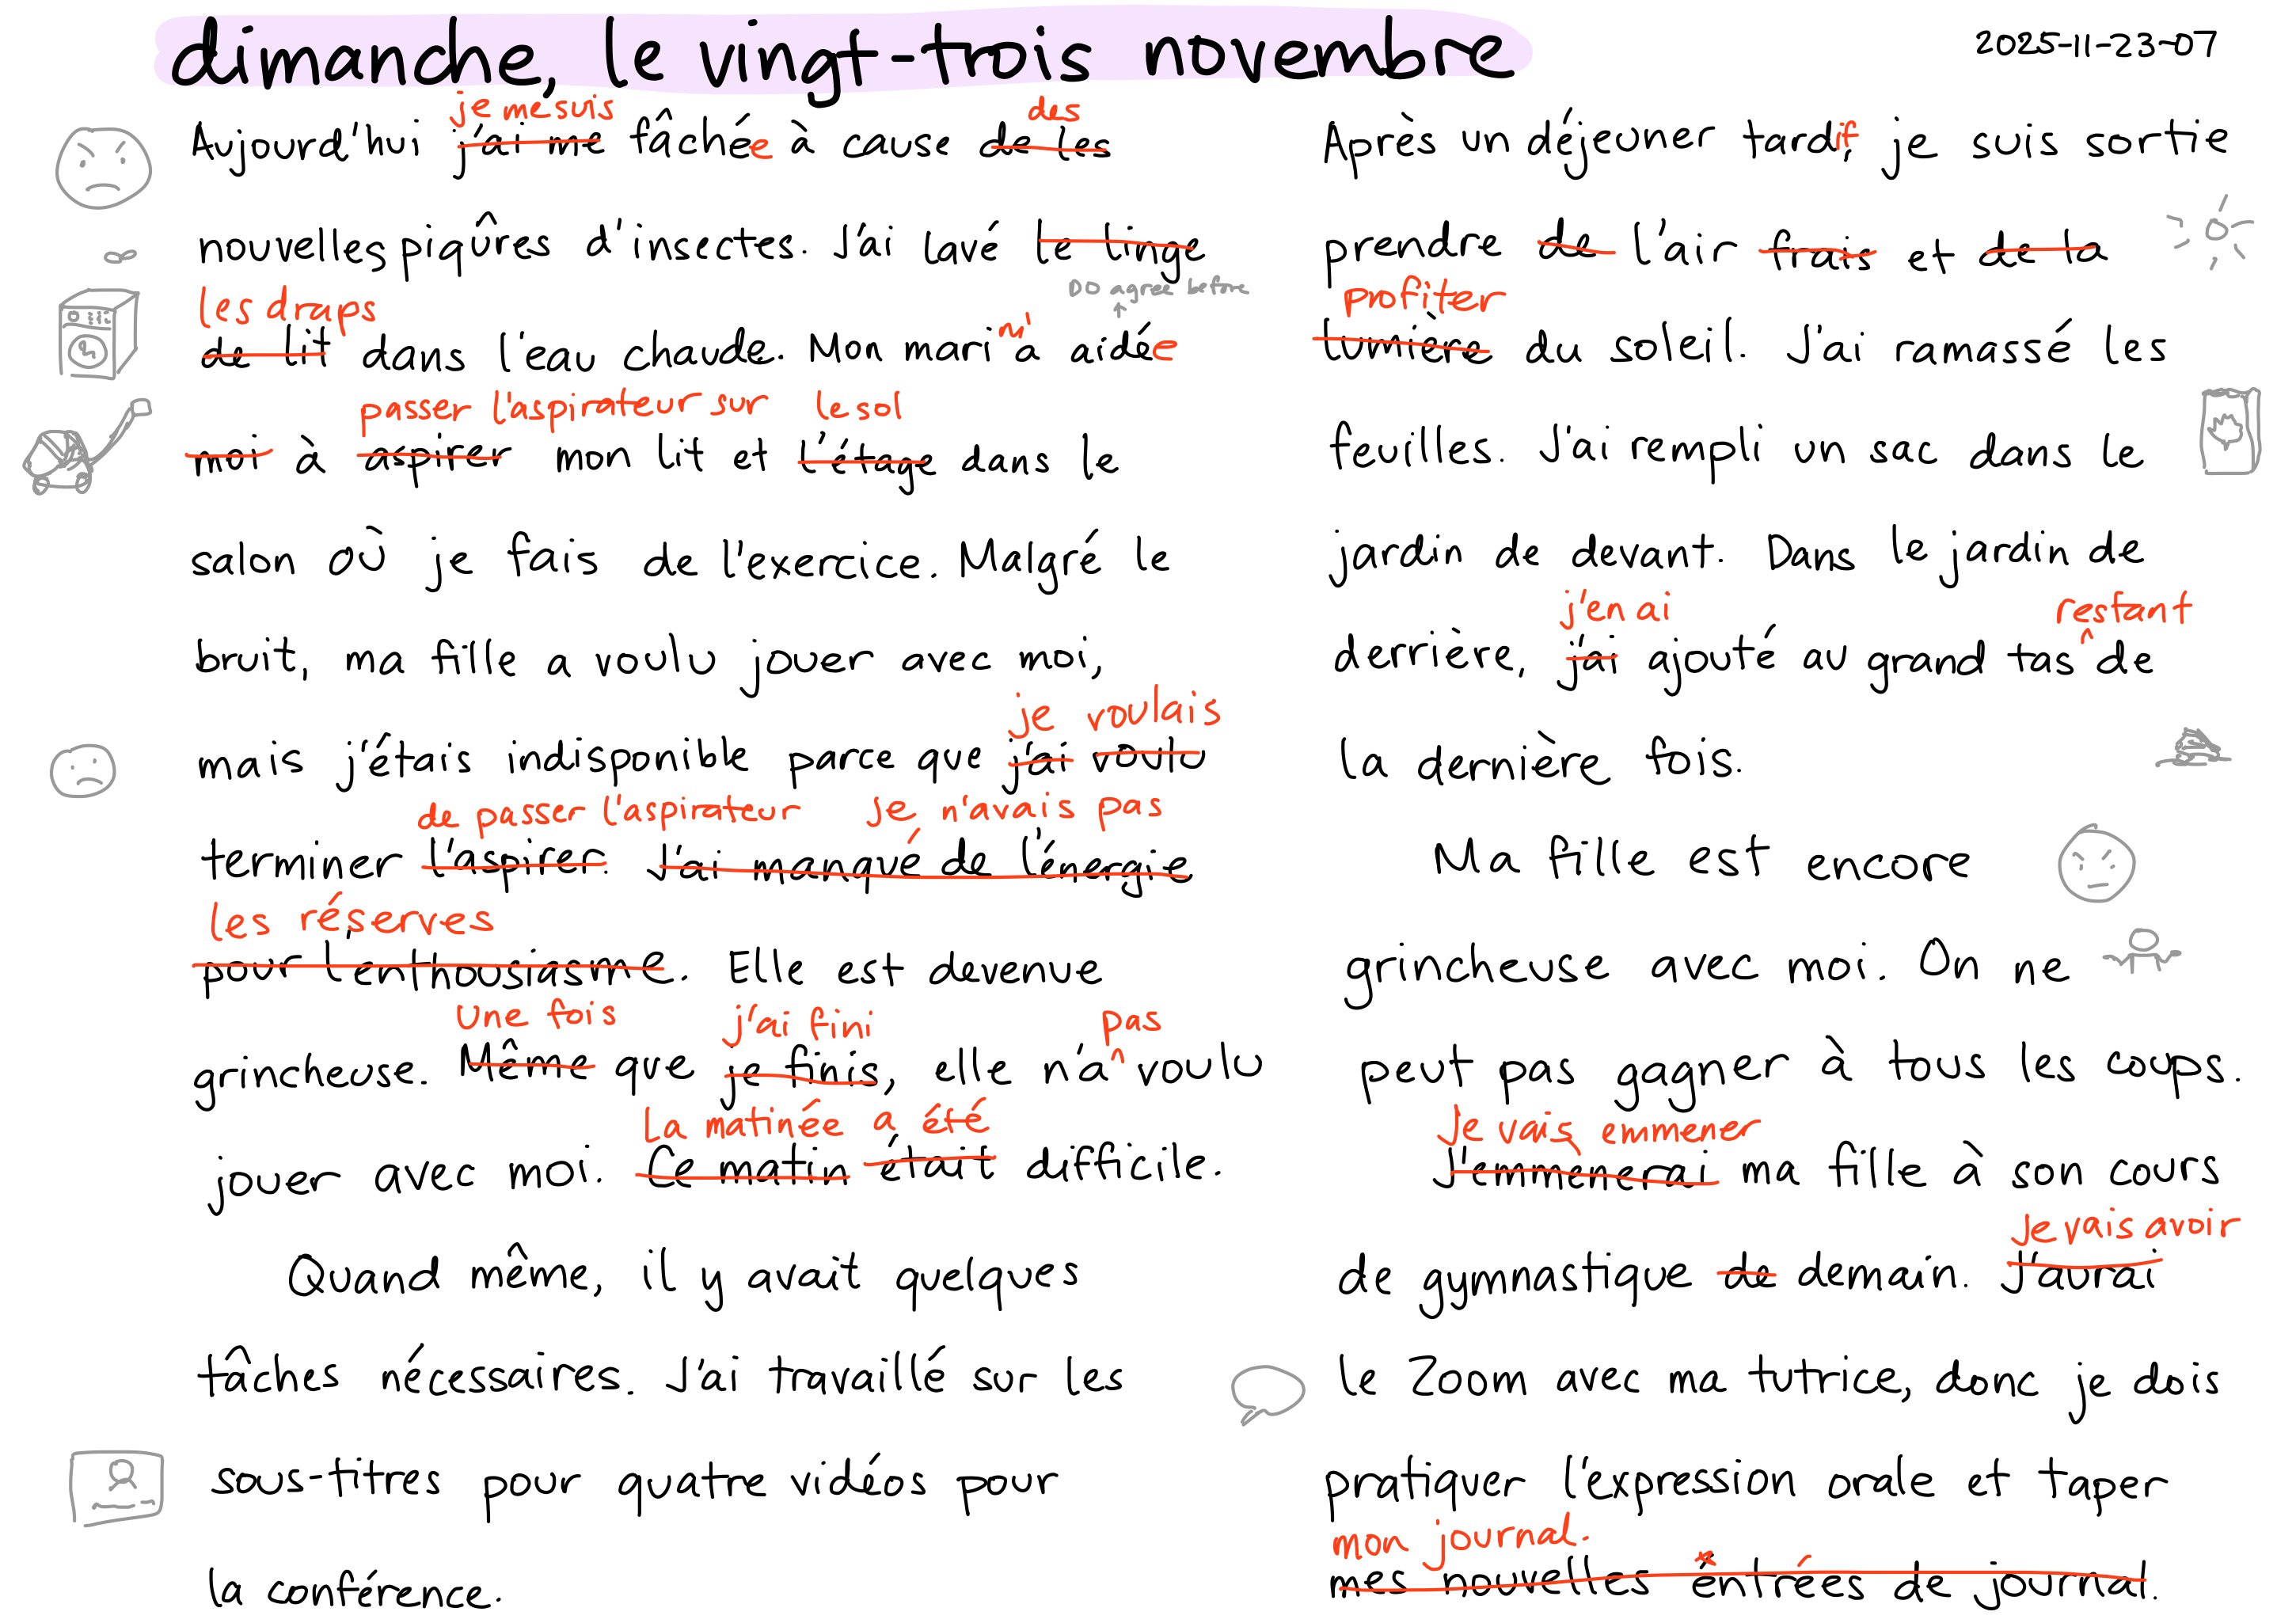 dimanche, le vingt-trois novembre
2025-11-23-07
je me suis des
Aujourd'hui j'ai me fâchée à cause de les
nouvelles piqûres d'insectes. J'ai lavé le linge
DO agree before
les draps
de lit dans l'eau chaude. Mon mari m'a aidée
passer l'aspirateur sur le sol
moi à aspirer mon lit et l'étage dans le
salon où je fais de l'exercice. Malgré le
bruit, ma fille a voulu jouer avec moi,
je voulais
mais j'étais indisponible parce que j'ai voulu
de passer l'aspirateur je n'avais pas
terminer l'aspirer. J'ai manqué de l'énergie
les réserves
pour l'enthousiasme. Elle est devenue
une fois j'ai fini pas
grincheuse. Même que je finis, elle n'a voulu
La matinée a été
jouer avec moi. Ce matin était difficile.
Quand même, il y avait quelques
tâches nécessaires. J'ai travaillé sur les
sous-titres pour quatre vidéos pour
la conférence.
Après un déjeuner tardif, je suis sortie
prendre de l'air frais et de la
profiter
lumière du soleil. J'ai ramassé les
feuilles. J'ai rempli un sac dans le
jardin de devant. Dans le jardin de
j'en ai restant
derrière, j'ai ajouté au grand tas de
la dernière fois.
Ma fille est encore
grincheuse avec moi. On ne
peut pas gagner à tous les coups.
Je vais emmener
J'emmènerai ma fille à son cours
Je vais avoir
de gymnastique de demain. J'aurai
le Zoom avec ma tutrice, donc je dois
pratiquer l'expression orale et taper
mon journal.
mes nouvelles entrées de journal.